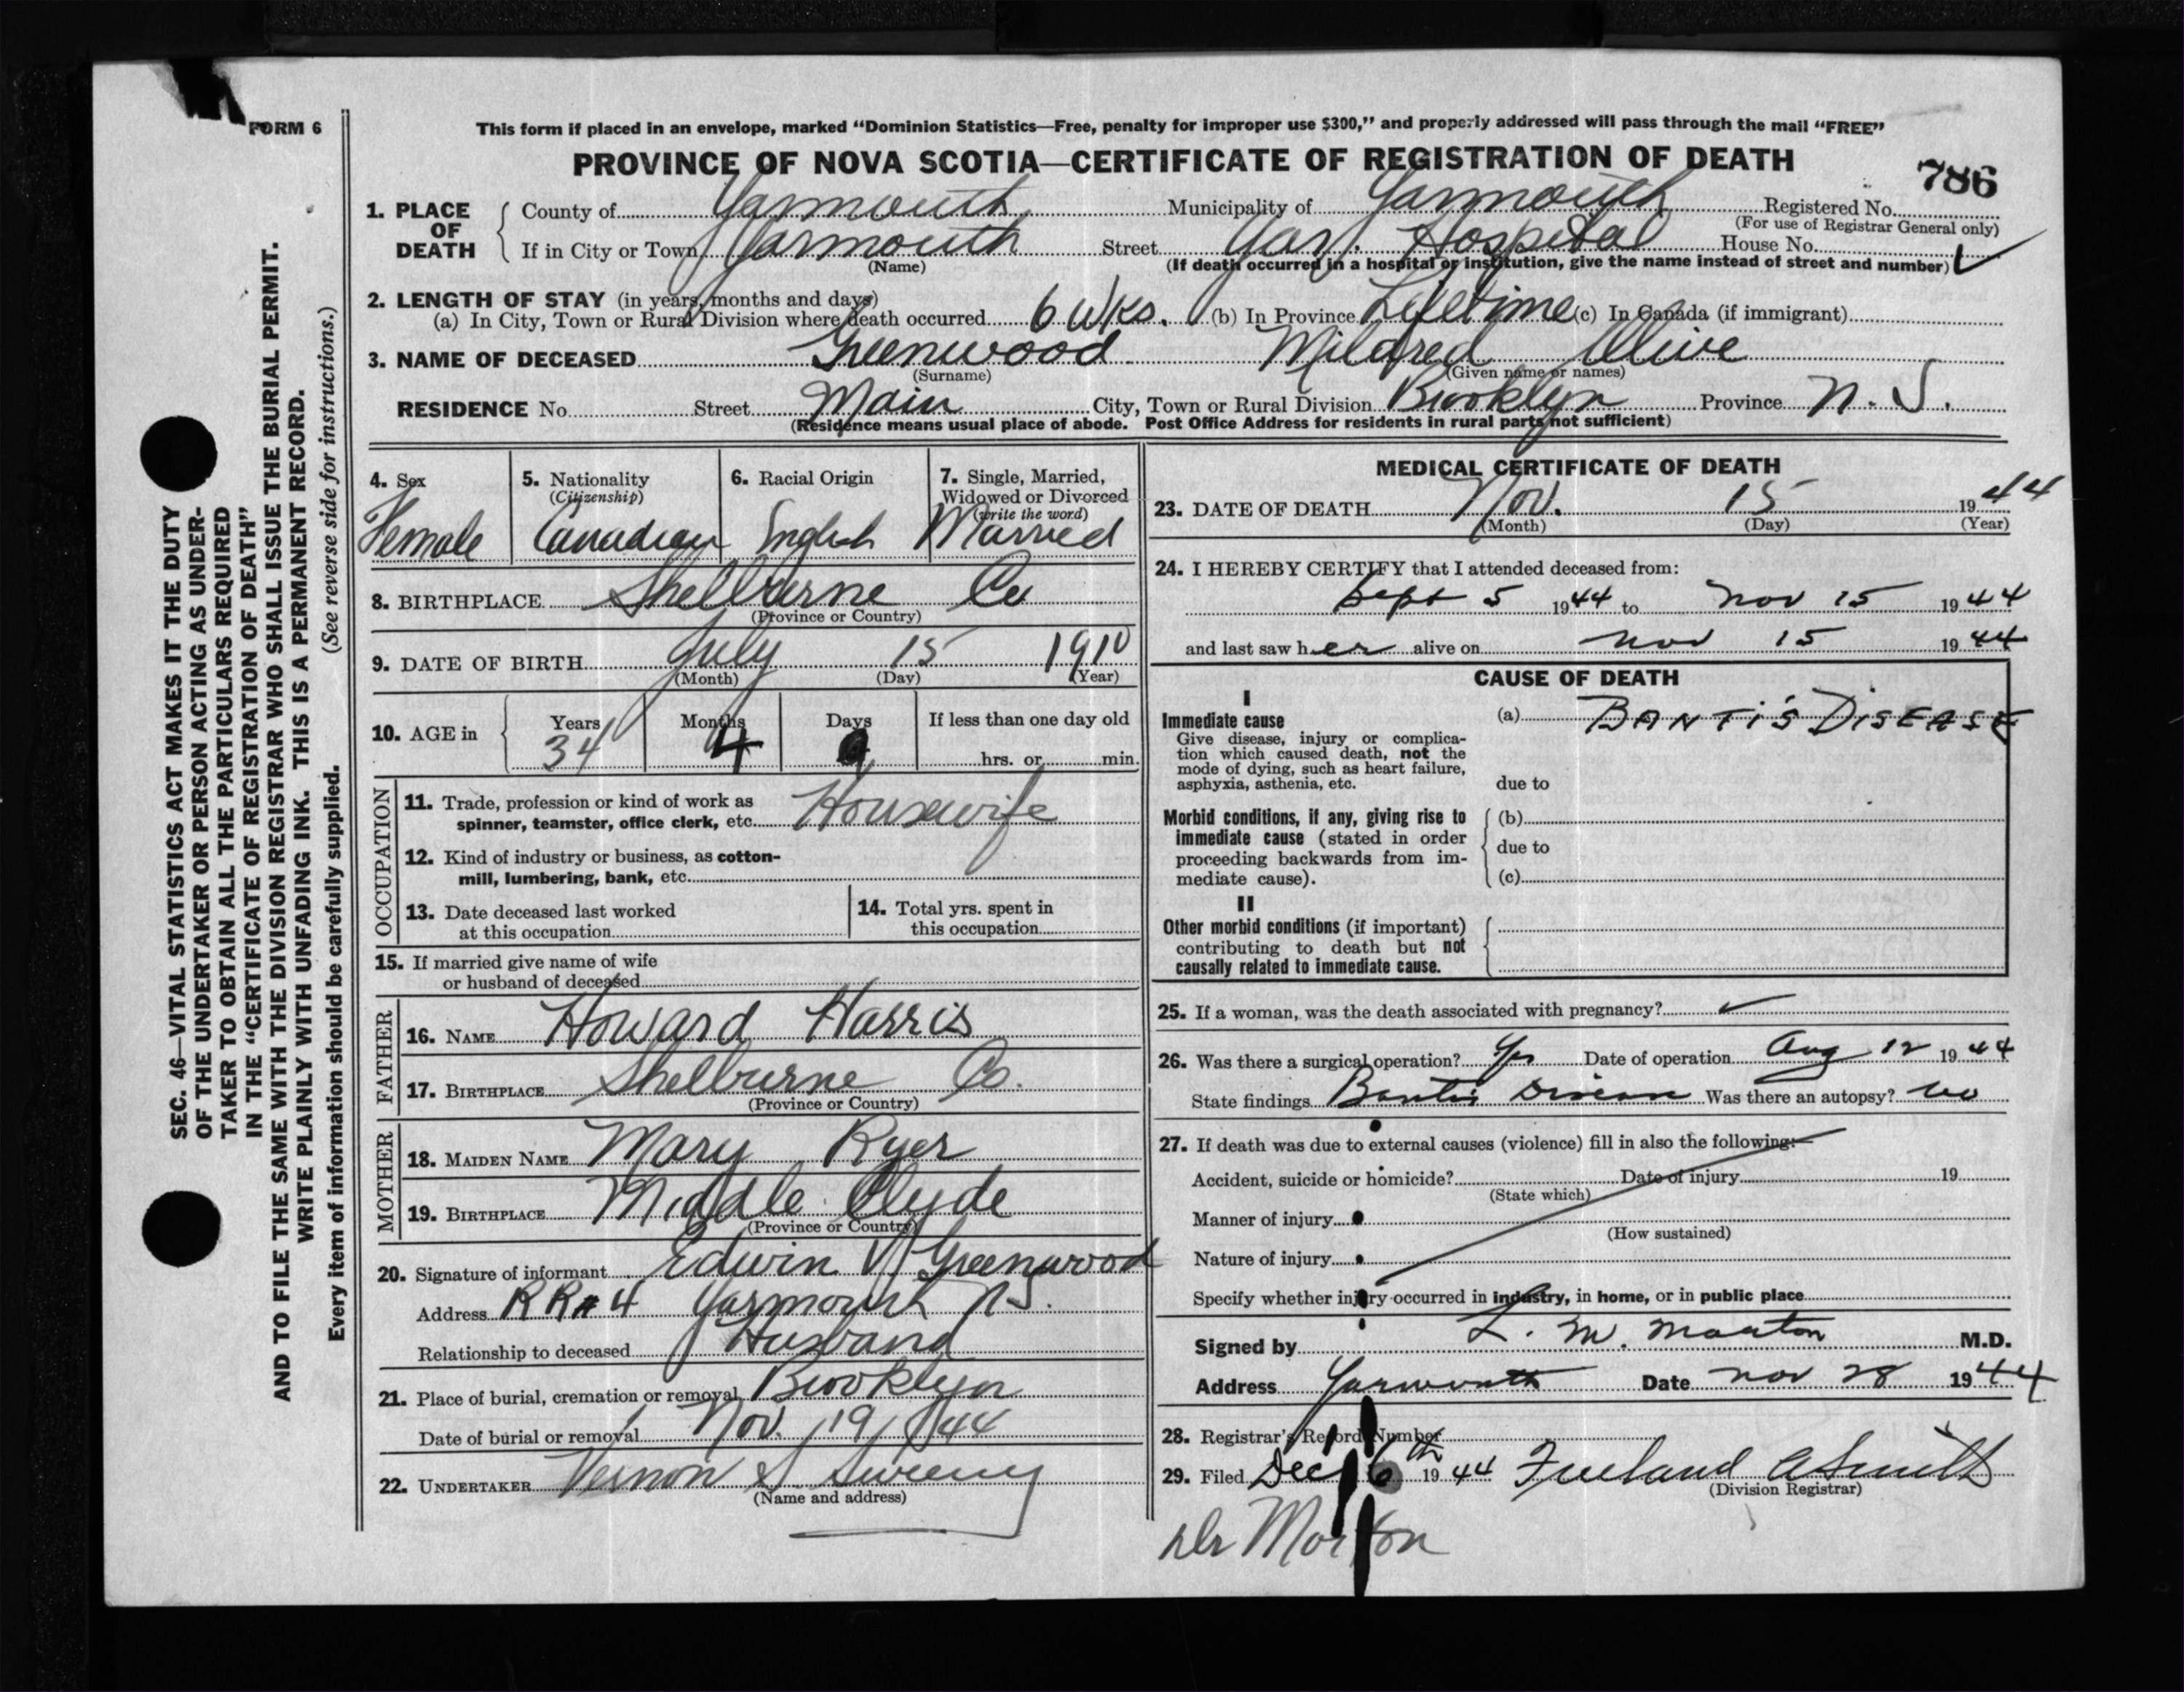 FORM 6
This form if placed in an envelope, marked “Dominion Statistics—Free, penalty for improper use $300,” and properly addressed will pass through the mail “FREE”
PROVINCE OF NOVA SCOTIA—CERTIFICATE OF REGISTRATION OF DEATH
786
1. PLACE OF DEATH County of Yarmouth Municipality of Yarmouth Registered No.
(For use of Registrar General only)
If in City or Town Yarmouth Street Yar. Hospital House No.
(Name) (If death occurred in a hospital or institution, give the name instead of street and number)
2. LENGTH OF STAY (in years, months and days)
(a) In City, Town or Rural Division where death occurred 6 Wks. (b) In Province Lifetime (c) In Canada (if immigrant)
3. NAME OF DECEASED Greenwood Mildred Olive
(Surname) (Given name or names)
RESIDENCE No. Street Main City, Town or Rural Division Brooklyn Province N. S.
(Residence means usual place of abode. Post Office Address for residents in rural parts not sufficient)
4. Sex 5. Nationality (Citizenship) 6. Racial Origin 7. Single, Married, Widowed or Divorced (write the word)
Female Canadian English Married
8. BIRTHPLACE Shelburne Co
(Province or Country)
9. DATE OF BIRTH July 15 1910
(Month) (Day) (Year)
10. AGE in Years Months Days If less than one day old
34 4 0 hrs. or min.
OCCUPATION
11. Trade, profession or kind of work as
spinner, teamster, office clerk, etc. Housewife
12. Kind of industry or business, as cotton-
mill, lumbering, bank, etc.
13. Date deceased last worked
at this occupation
14. Total yrs. spent in
this occupation
15. If married give name of wife
or husband of deceased
FATHER
16. NAME Howard Harris
17. BIRTHPLACE Shelburne Co.
(Province or Country)
MOTHER
18. MAIDEN NAME Mary Ryer
19. BIRTHPLACE Middle Clyde
(Province or Country)
20. Signature of informant Edwin V Greenwood
Address RR#4 Yarmouth NS.
Relationship to deceased Husband
21. Place of burial, cremation or removal Brooklyn
Date of burial or removal Nov. 19/44
22. UNDERTAKER Vernon S Sweeny
(Name and address)
MEDICAL CERTIFICATE OF DEATH
23. DATE OF DEATH Nov. 15 1944
(Month) (Day) (Year)
24. I HEREBY CERTIFY that I attended deceased from:
Sept 5 1944 to Nov 15 1944
and last saw her alive on Nov 15 1944
CAUSE OF DEATH
I
Immediate cause (a) BANTI'S DISEASE
Give disease, injury or complica-
tion which caused death, not the
mode of dying, such as heart failure,
asphyxia, asthenia, etc. due to
Morbid conditions, if any, giving rise to (b)
immediate cause (stated in order
proceeding backwards from im- due to
mediate cause). (c)
II
Other morbid conditions (if important)
contributing to death but not
causally related to immediate cause.
25. If a woman, was the death associated with pregnancy? ✓
26. Was there a surgical operation? Yes Date of operation Aug 12 1944
State findings Banti's Disease Was there an autopsy? no
27. If death was due to external causes (violence) fill in also the following:
Accident, suicide or homicide? Date of injury 19
(State which)
Manner of injury
(How sustained)
Nature of injury
Specify whether injury occurred in industry, in home, or in public place
Signed by L. M. Morton M.D.
Address Yarmouth Date Nov 28 1944
28. Registrar's Record Number
29. Filed Dec 16th 1944 Freeland A Smith
(Division Registrar)
Dr Morton
SEC. 46—VITAL STATISTICS ACT MAKES IT THE DUTY
OF THE UNDERTAKER OR PERSON ACTING AS UNDER-
TAKER TO OBTAIN ALL THE PARTICULARS REQUIRED
IN THE “CERTIFICATE OF REGISTRATION OF DEATH”
AND TO FILE THE SAME WITH THE DIVISION REGISTRAR WHO SHALL ISSUE THE BURIAL PERMIT.
WRITE PLAINLY WITH UNFADING INK. THIS IS A PERMANENT RECORD.
Every item of information should be carefully supplied. (See reverse side for instructions.)